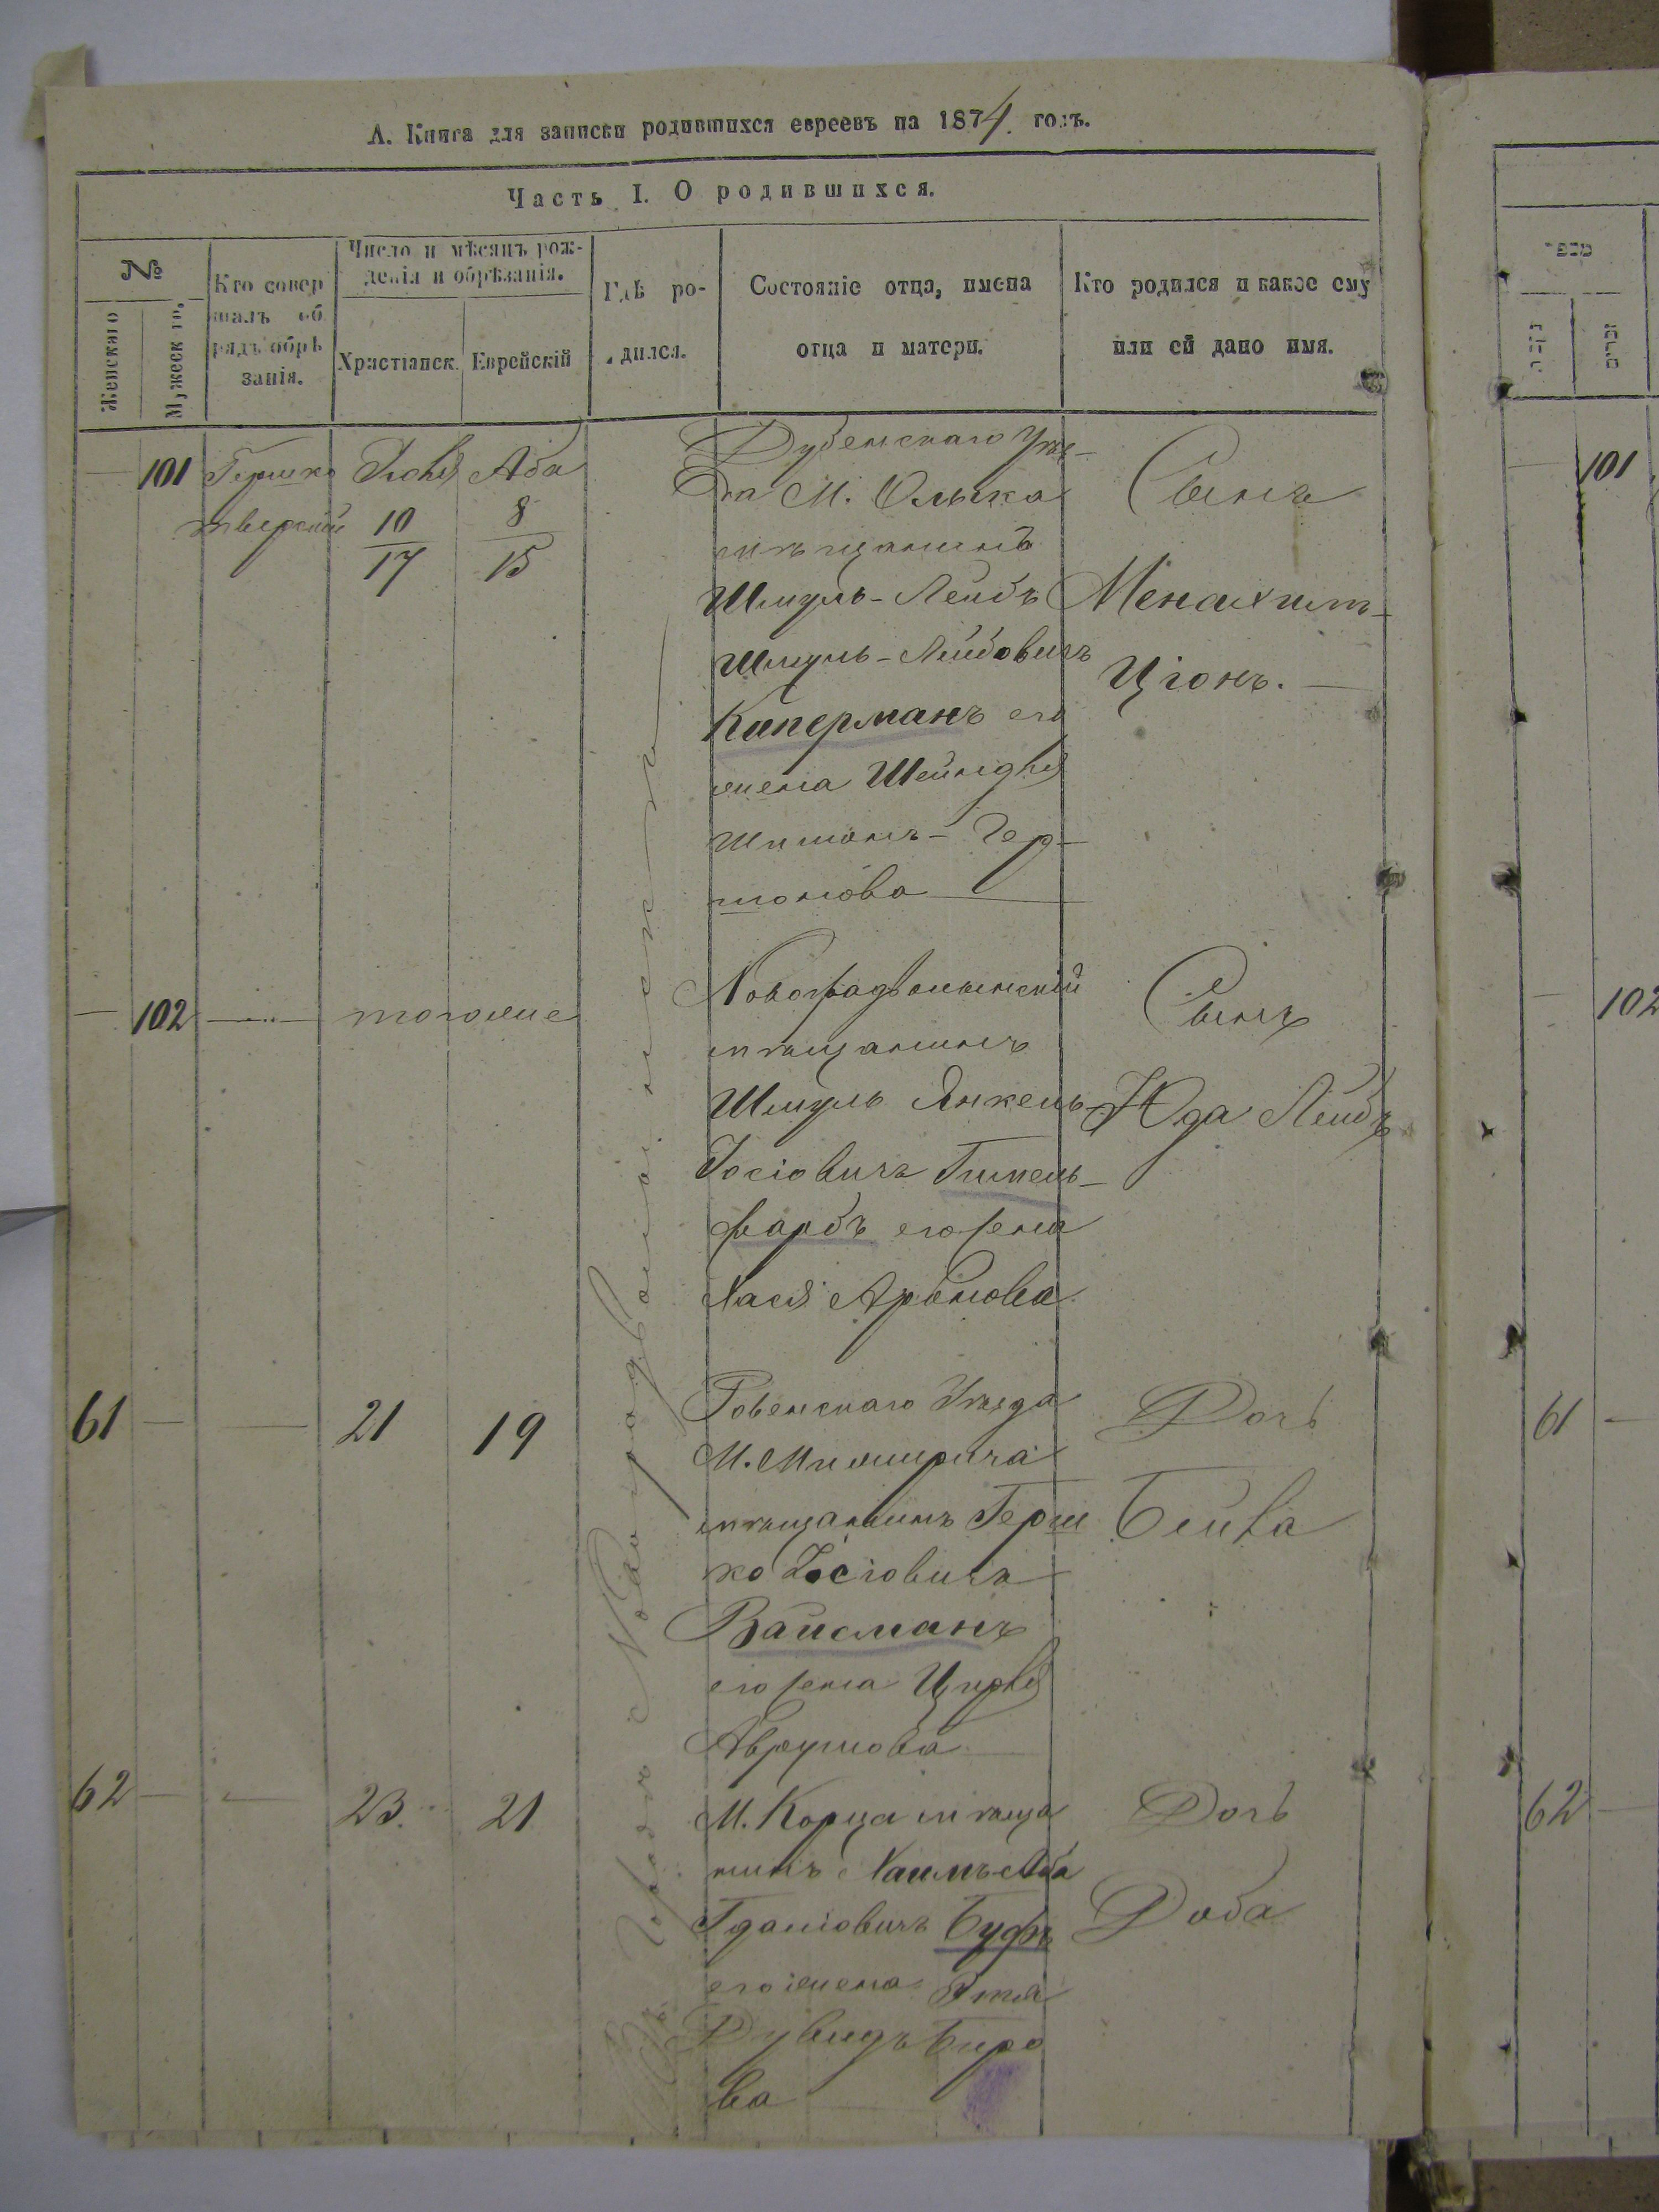 А. Книга для записки родившихся евреевъ на 1874. годъ.
Часть I. О родившихся.
№
Женскаго
Мужеск го,
Кто совер
шалъ об
рядъ обрѣ
занія.
Число и мѣсяцъ рож-
денія и обрѣзанія.
Христіанск.
Еврейскій
Гдѣ ро-
дился.
Состояніе отца, имена
отца и матери.
Кто родился и какое ему
или ей дано имя.
— 101
Гершко
тверскій
10
17
Аба
8
15
Дубенскаго Уѣз-
да М. Олыка
мѣщанинъ
Шмуль-Лейбъ
Шмуль-Лейбовичъ
Киперманъ его
жена Шейндля
Шимонъ-Гер-
шонова
Сынъ
Менахимъ-
Ціонъ.
въ Городѣ Новоградволынскѣ
— 102
тогоже
Новоградволынскій
мѣщанинъ
Шмуль Янкель
Іосіовичъ Гимель-
фарбъ его жена
Хася Аронова
Сынъ
Юда Лейбъ
61 —
21
19
Ровенскаго Уѣзда
М. Межирича
мѣщанинъ Герш
ко Іосіовичъ
Вайсманъ
его жена Цирля
Аврумова
Дочь
Бейла
62 —
23.
21
М. Корца мѣща
нинъ Хаимъ Аба
Гдаліовичъ Буфъ
его жена
ва
Дочь
Доба
101
102
61 —
62 —